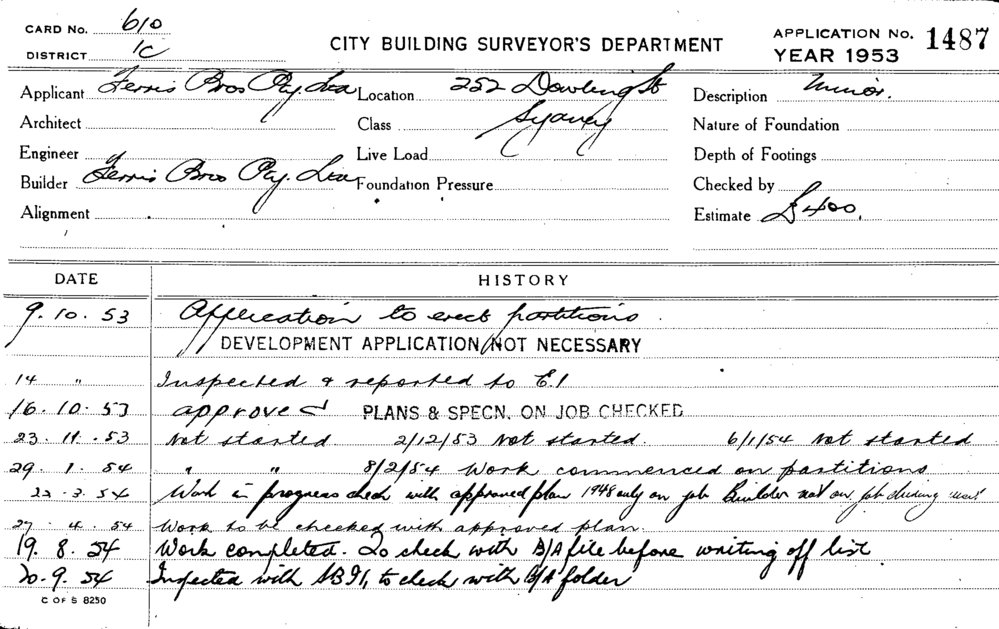 CARD No. 610
DISTRICT 1C
CITY BUILDING SURVEYOR'S DEPARTMENT
APPLICATION No. 1487
YEAR 1953
Applicant Ferris Bros Pty. Ltd Location 252 Dowling St Description Minor.
Architect Class Sydney Nature of Foundation
Engineer Live Load Depth of Footings
Builder Ferris Bros Pty. Ltd Foundation Pressure Checked by
Alignment Estimate £400.
DATE HISTORY
9.10.53 Application to erect partitions.
DEVELOPMENT APPLICATION NOT NECESSARY
14 " Inspected & reported to E.1
16.10.53 approved PLANS & SPECN. ON JOB CHECKED
23.11.53 Not started 2/12/53 Not started. 6/1/54 Not started
29.1.54 " " 8/2/54 Work commenced on partitions
22.3.54 Work in progress check with approved plan 1948 only on job Builder not on job during
27.4.54 Work to be checked with approved plan.
19.8.54 Work completed. To check with B/A file before writing off list
20.9.54 Inspected with to check with B/A folder
C OF S 8250